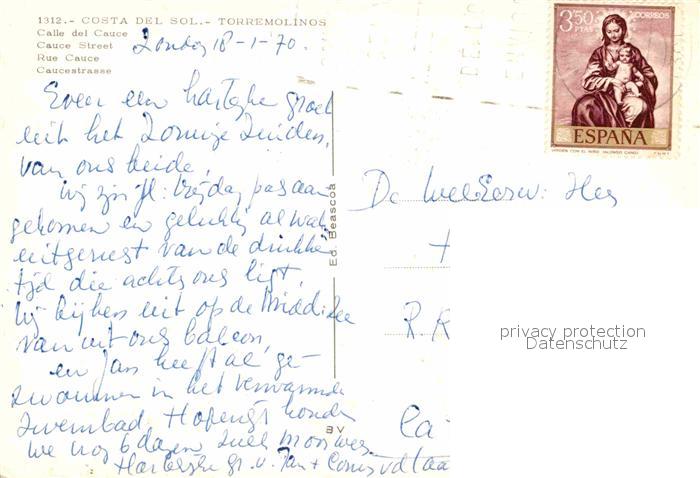 1312.- COSTA DEL SOL.- TORREMOLINOS
Calle del Cauce
Cauce Street
Rue Cauce
Caucestrasse
Zondag 18-1-70.
Even een hartelijke groet
uit het Zonnige Zuiden,
van ons beide,
Wij zijn jl: Vrijdag pas aan
gekomen en gelukkig al wat
uitgerust van de drukke
tijd die achter ons ligt,
Wij kijken uit op de Midd. Zee
van uit ons balcon,
en Jan heeft al ge-
zwommen in het verwarmde
zwembad. Hopenlijk houden
we nog 6 dagen zulk mooi weer
Hartelijke gr. v. Jan + Corrie
Ed. Beascoa
BV
3'50
PTAS
CORREOS
ESPAÑA
VIRGEN CON EL NIÑO (ALONSO CANO)
F.N.M.T.
De WelEerw: Heer
+
R.K
Ca
privacy protection
Datenschutz